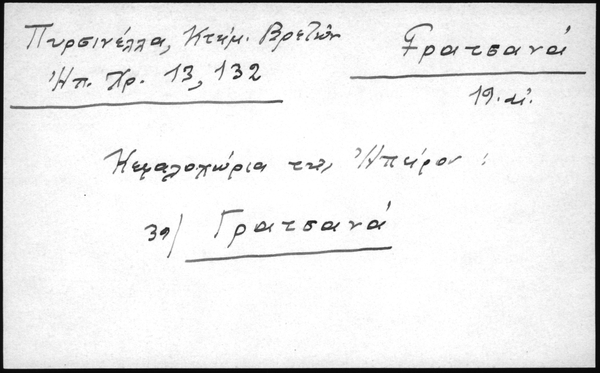 Πυρσινέλλα, Κτήμ. Βρετιῶν
Ἠπ. Χρ. 13, 132
Γρατσανά
19. αἰ.
Κεφαλοχώρια τῆς Ἠπείρου :
39) Γρατσανά